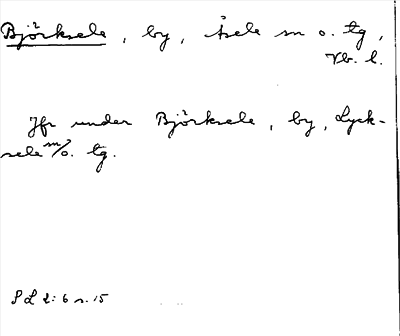 Björksele, by, Åsele sn o. tg,
Vb. l.
Jfr under Björksele, by, Lyck-
sele sn/o. tg.
SL 2:6 s. 15